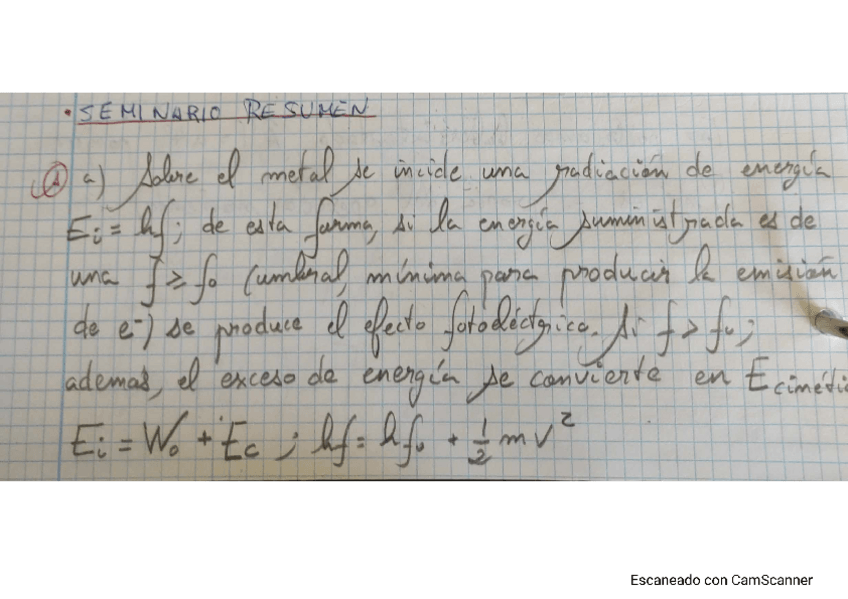 • SEMINARIO RESUMEN
① a) Sobre el metal se incide una radiación de energía
Ei = hf; de esta forma, si la energía suministrada es de
una f ≥ f₀ (umbral, mínima para producir la emisión
de e⁻) se produce el efecto fotoeléctrico. Si f > f₀;
ademas, el exceso de energía se convierte en E cinétic
Ei = W₀ + Ec ; hf = hf₀ + 1/2 mv²
Escaneado con CamScanner